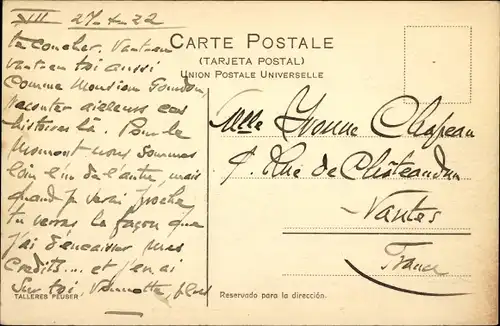 XII 27-4-22
te coucher. Vanten
vanten toi aussi
Comme Monsieur Goudon,
raconter ailleurs ces
histoires là. Pour le
moment nous sommes
loin l'un de l'autre, mais
quand je serai proche
tu verras la façon que
j'ai d'encaisser mes
Credits.... et j'en ai
sur toi, plus
TALLERES PEUSER
CARTE POSTALE
(TARJETA POSTAL)
UNION POSTALE UNIVERSELLE
Mlle Yvonne Chapeau
9. Rue de Châteaudun
Nantes
France
Reservado para la dirección.